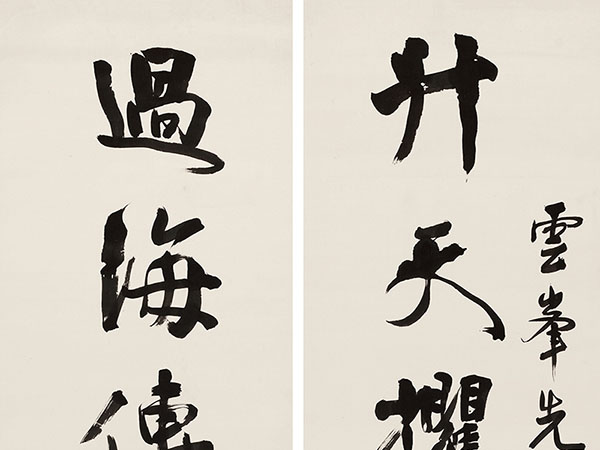 雲峯先
升天攫
過海傳